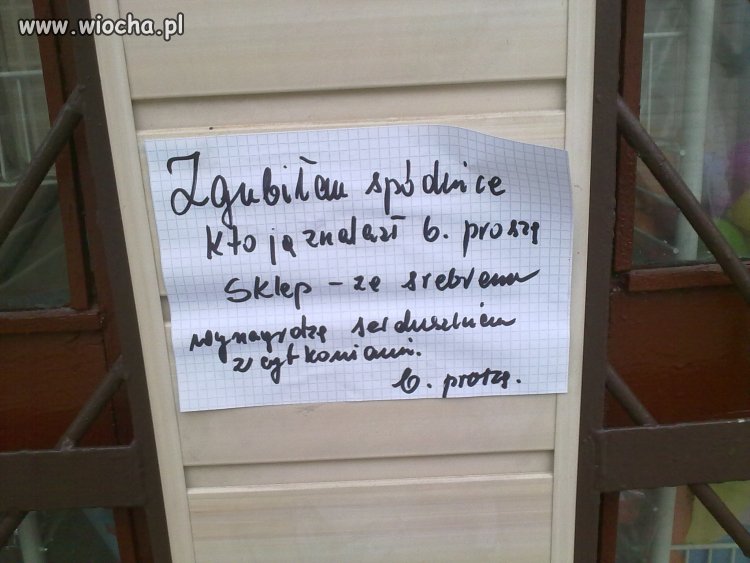 www.wiocha.pl
Zgubiłam spódnice
kto ją znalazł b. proszę
Sklep - ze srebrem
wynagrodzę serdusznim
b. proszę.